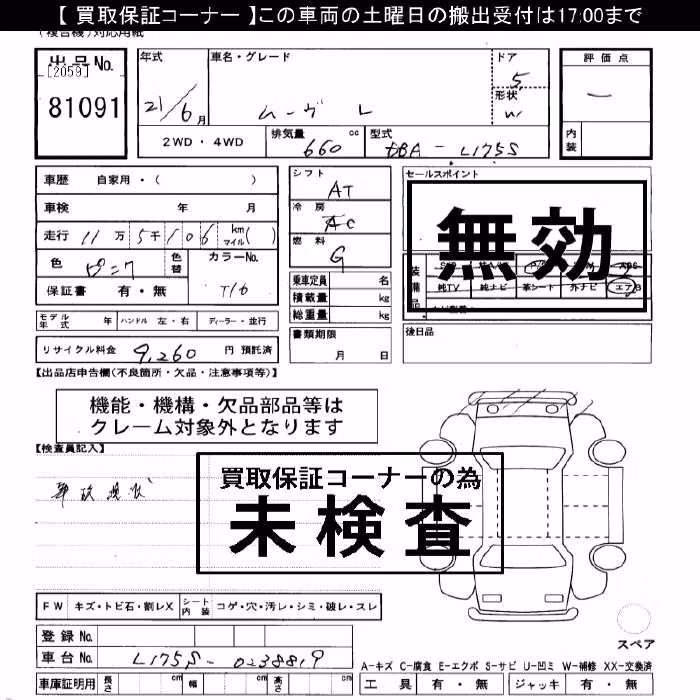 【 買取保証コーナー 】この車両の土曜日の搬出受付は17:00まで
(複合機)対応用紙
出品No.
[2059]
81091
年式
21/6月
車名・グレード
ムーヴ L
ドア
5
形状
W
評価点
一
内装
2WD・4WD
排気量
660 cc
型式
DBA-L175S
車歴 自家用・( )
車検 年 月
走行 11万5千106 km マイル( )
色 ピンク
色替
カラーNo.
T16
保証書 有・無
シフト
AT
冷房
AC
燃料
G
乗車定員 名
積載量 kg
総重量 kg
書類期限
月 日
セールスポイント
無効
装備品
ABS
純TV 純ナビ 革シート 外ナビ エアB
後日品
モデル年式 年 ハンドル 左・右 ディーラー・並行
リサイクル料金 9,260 円 預託済
【出品店申告欄(不良箇所・欠品・注意事項等)】
機能・機構・欠品部品等は
クレーム対象外となります
【検査員記入】
買取保証コーナーの為
未検査
FW キズ・トビ石・割レX シート内装 コゲ・穴・汚レ・シミ・破レ・スレ
スペア
登録No.
車台No. L175S-0238819
A-キズ C-腐食 E-エクボ S-サビ U-凹ミ W-補修 XX-交換済
車庫証明用 長さ cm 幅 cm 高さ cm
工具 有・無 ジャッキ 有・無